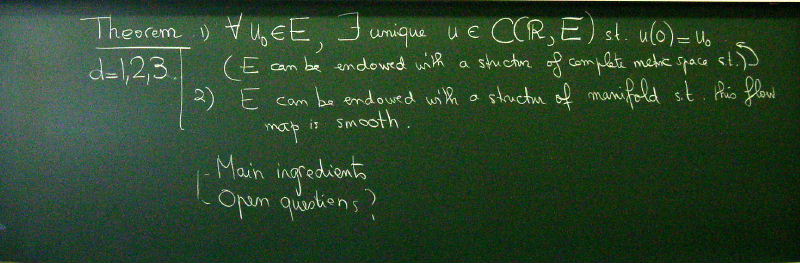 Theorem 1) ∀ u₀ ∈ E, ∃ unique u ∈ C(ℝ, E) st. u(0) = u₀
d=1,2,3. (E can be endowed with a structure of complete metric space s.t.)
2) E can be endowed with a structure of manifold s.t. this flow
map is smooth.
- Main ingredients
- Open questions?